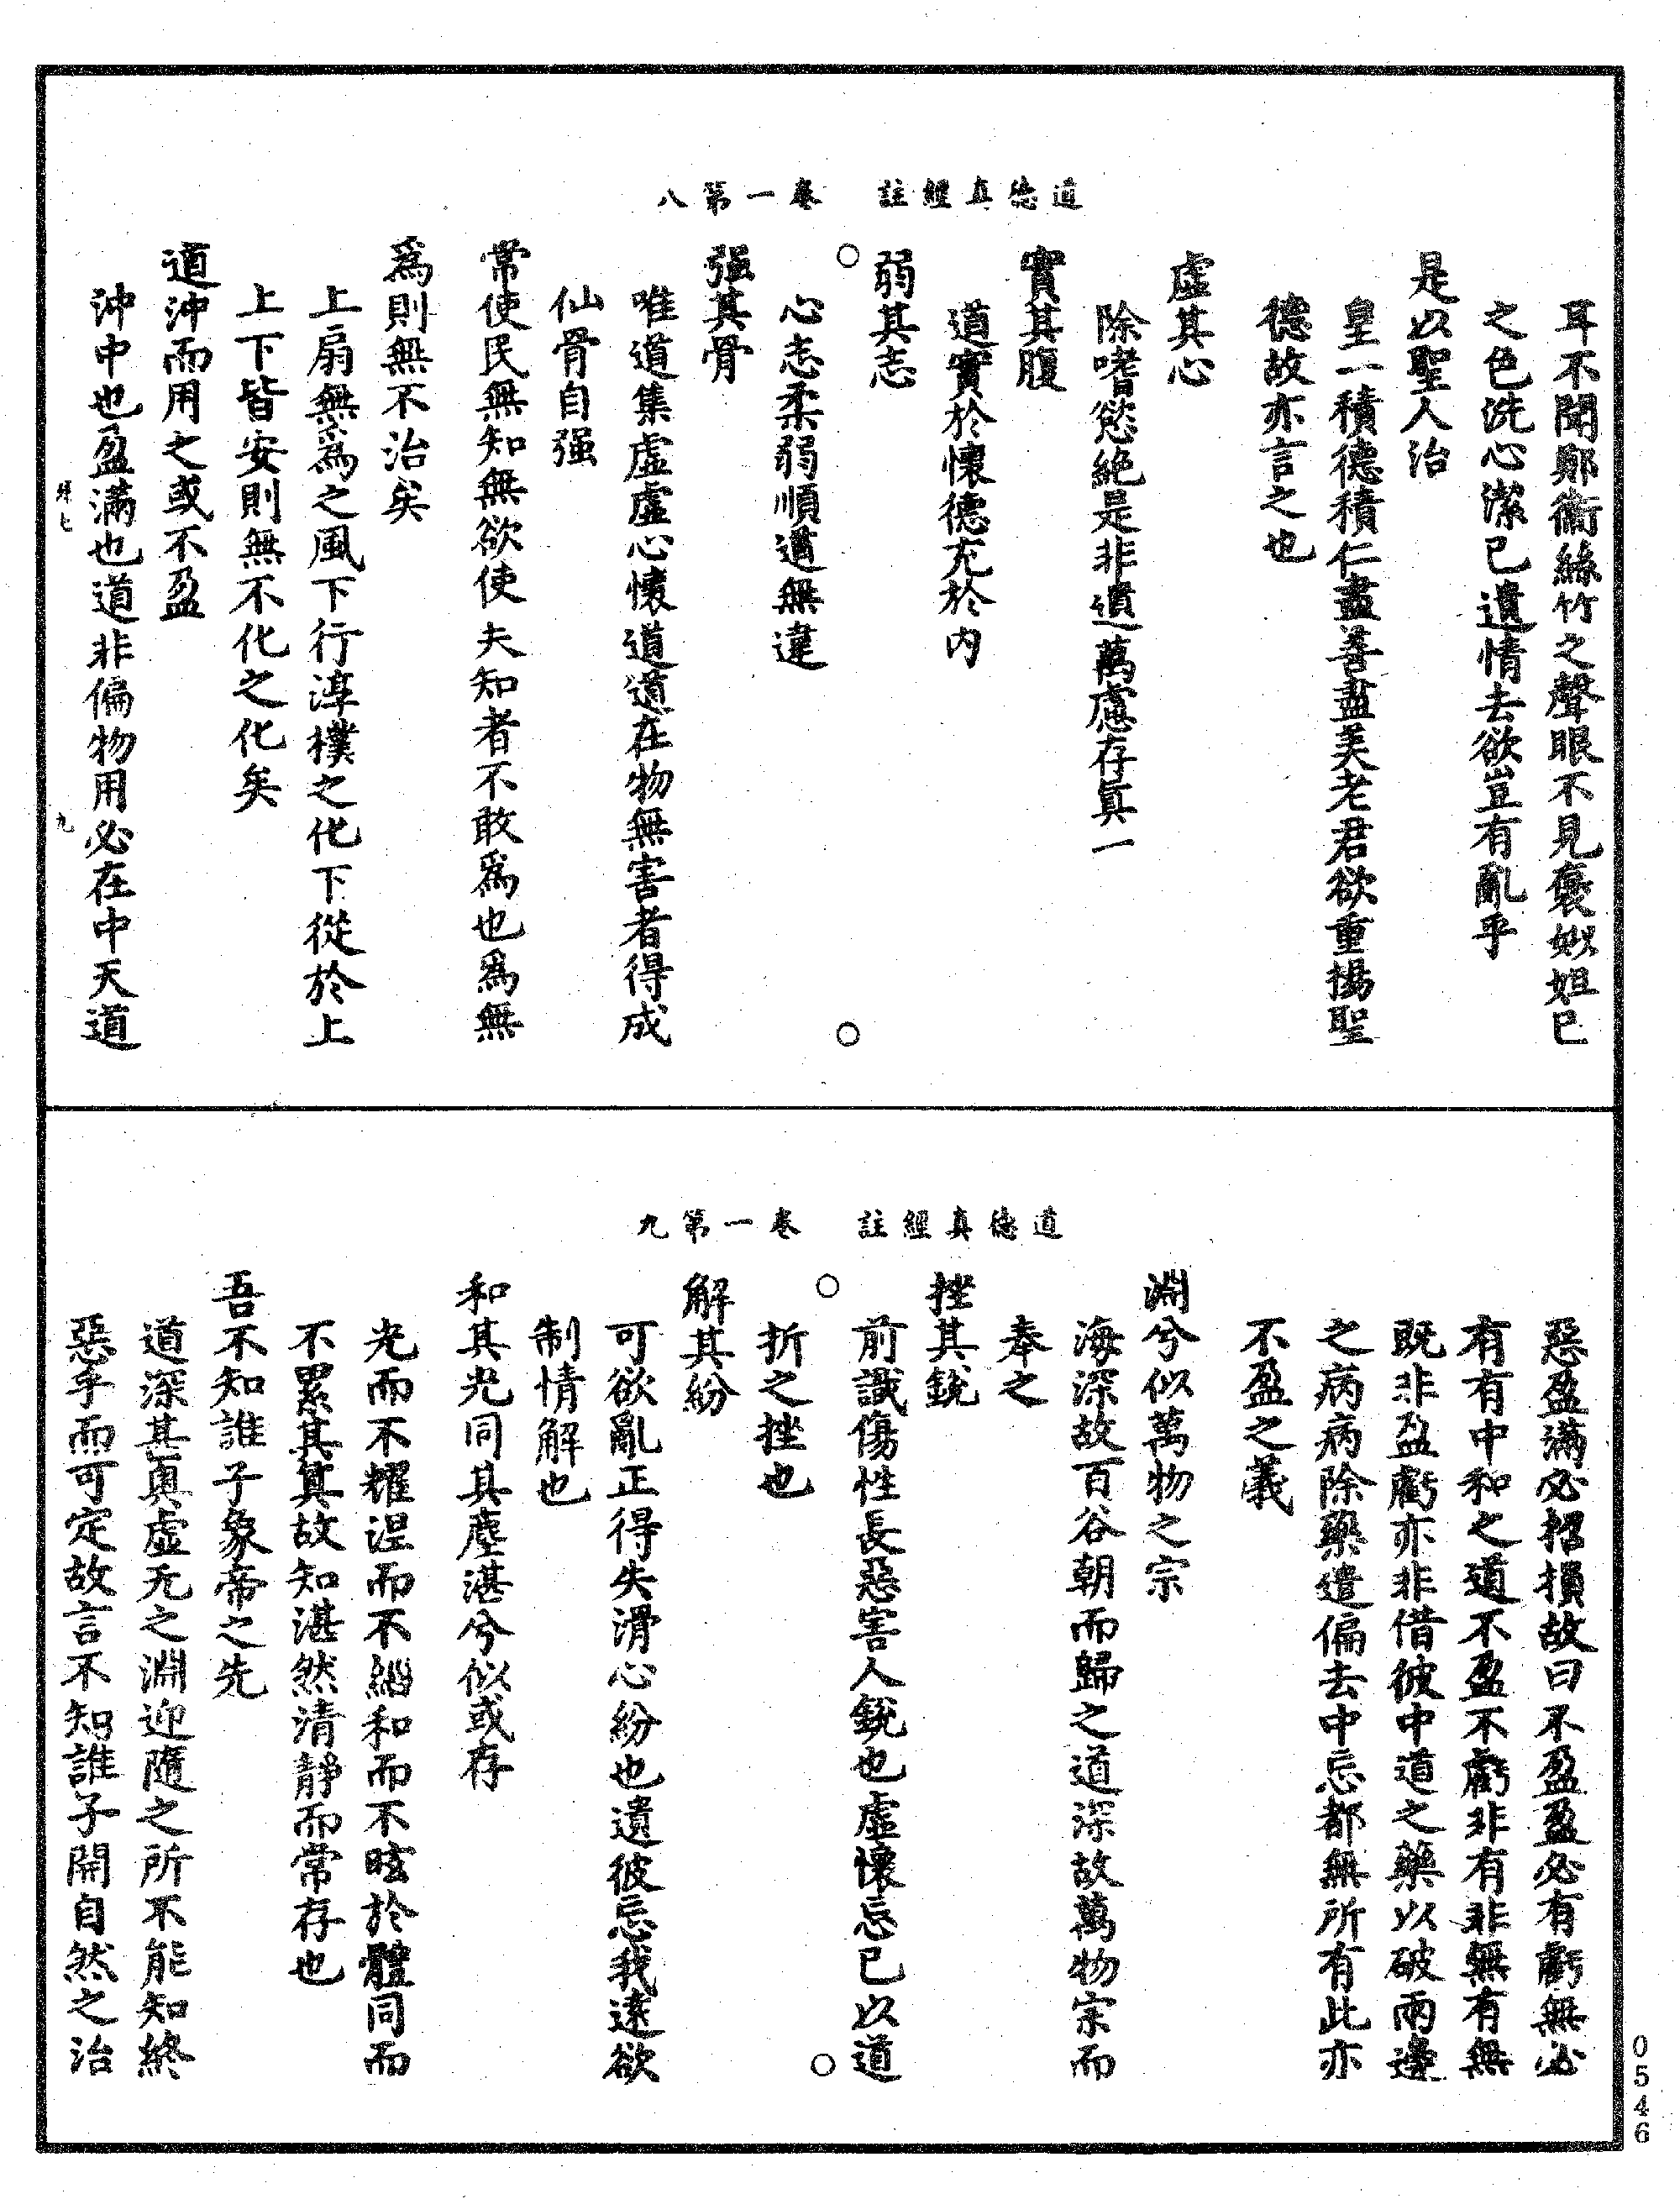 道德真經註　卷一第八
耳不聞鄭衞絲竹之聲眼不見褒姒妲己
之色洗心潔已遺情去欲豈有亂乎
是以聖人治
皇一積德積仁盡善盡美老君欲重揚聖
德故亦言之也
虛其心
除嗜慾絕是非遺萬慮存真一
實其腹
道實於懷德充於內
弱其志
○　○
心志柔弱順道無違
强其骨
唯道集虛虛心懷道道在物無害者得成
仙骨自强
常使民無知無欲使夫知者不敢爲也爲無
爲則無不治矣
上扇無爲之風下行淳樸之化下從於上
上下皆安則無不化之化矣
道沖而用之或不盈
沖中也盈滿也道非偏物用必在中天道
九
道德真經註　卷一第九
惡盈滿必招損故曰不盈盈必有虧無必
有有中和之道不盈不虧非有非無有無
既非盈虧亦非借彼中道之藥以破兩邊
之病病除藥遣偏去中忘都無所有此亦
不盈之義
淵兮似萬物之宗
海深故百谷朝而歸之道深故萬物宗而
奉之
挫其銳
前識傷性長惡害人銳也虛懷忘已以道
○　○
折之挫也
解其紛
可欲亂正得失滑心紛也遺彼忘我遠欲
制情解也
和其光同其塵湛兮似或存
光而不耀涅而不緇和而不眩於體同而
不累其真故知湛然清靜而常存也
吾不知誰子象帝之先
道深甚奧虛无之淵迎隨之所不能知終
惡乎而可定故言不知誰子開自然之治
0546